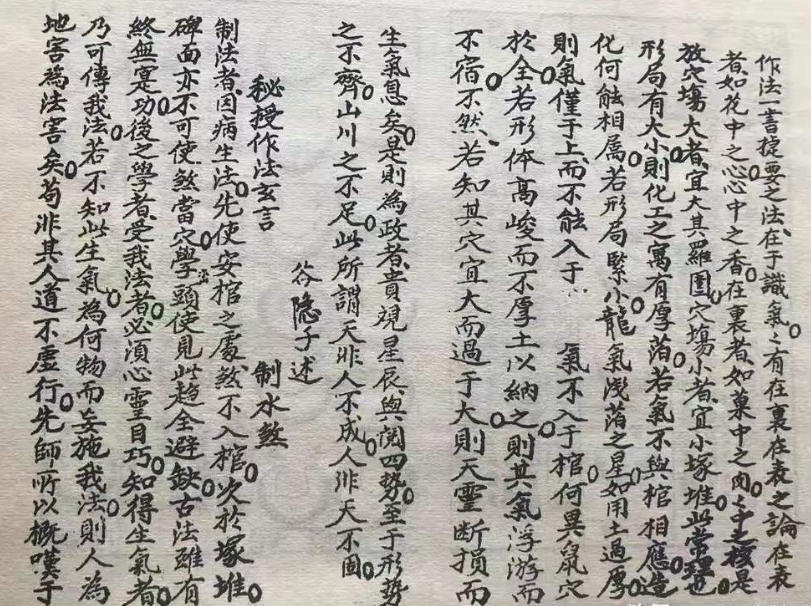 作法一書捷要之法、在于識氣。々有在裏在表之論、在表
者、如花中之心、心中之香、在裏者、如菓中之肉、々中之核、是
放穴塲大者、宜大其羅圍。穴塲小者、宜小塚堆、此常理也。
形局有大小、則化工之寓有厚薄。若氣不與棺相應、造
化何能相属。若形局緊小、龍氣浅薄之星、如用土過厚。
則氣僅于上而不能入于 氣不入于棺、何異鼠穴
於全。若形体高峻而不厚土以納之。則其氣浮游而
不宿。不然、若知其穴宜大而過于大、則天靈断損而
生氣息矣。是則為政者、貴覌星辰與閲四勢。至于形勢
之不齊。山川之不足。此所謂天非人不成。人非天不因。
谷隐子述
秘授作法玄言 制水煞
制法者、因病生法。先使安棺之處、煞不入棺。次於塚堆。
碑面亦不可使煞當穴。學頭使見此趋全避缺。古法雖有
終無寔功。後之學者、受我法者、必須心靈目巧。知得生氣者。
乃可傳我法。若不知此生氣。為何物而妄施我法。則人為
地害為法害矣。苟非其人道不虚行。先師所以概嘆于